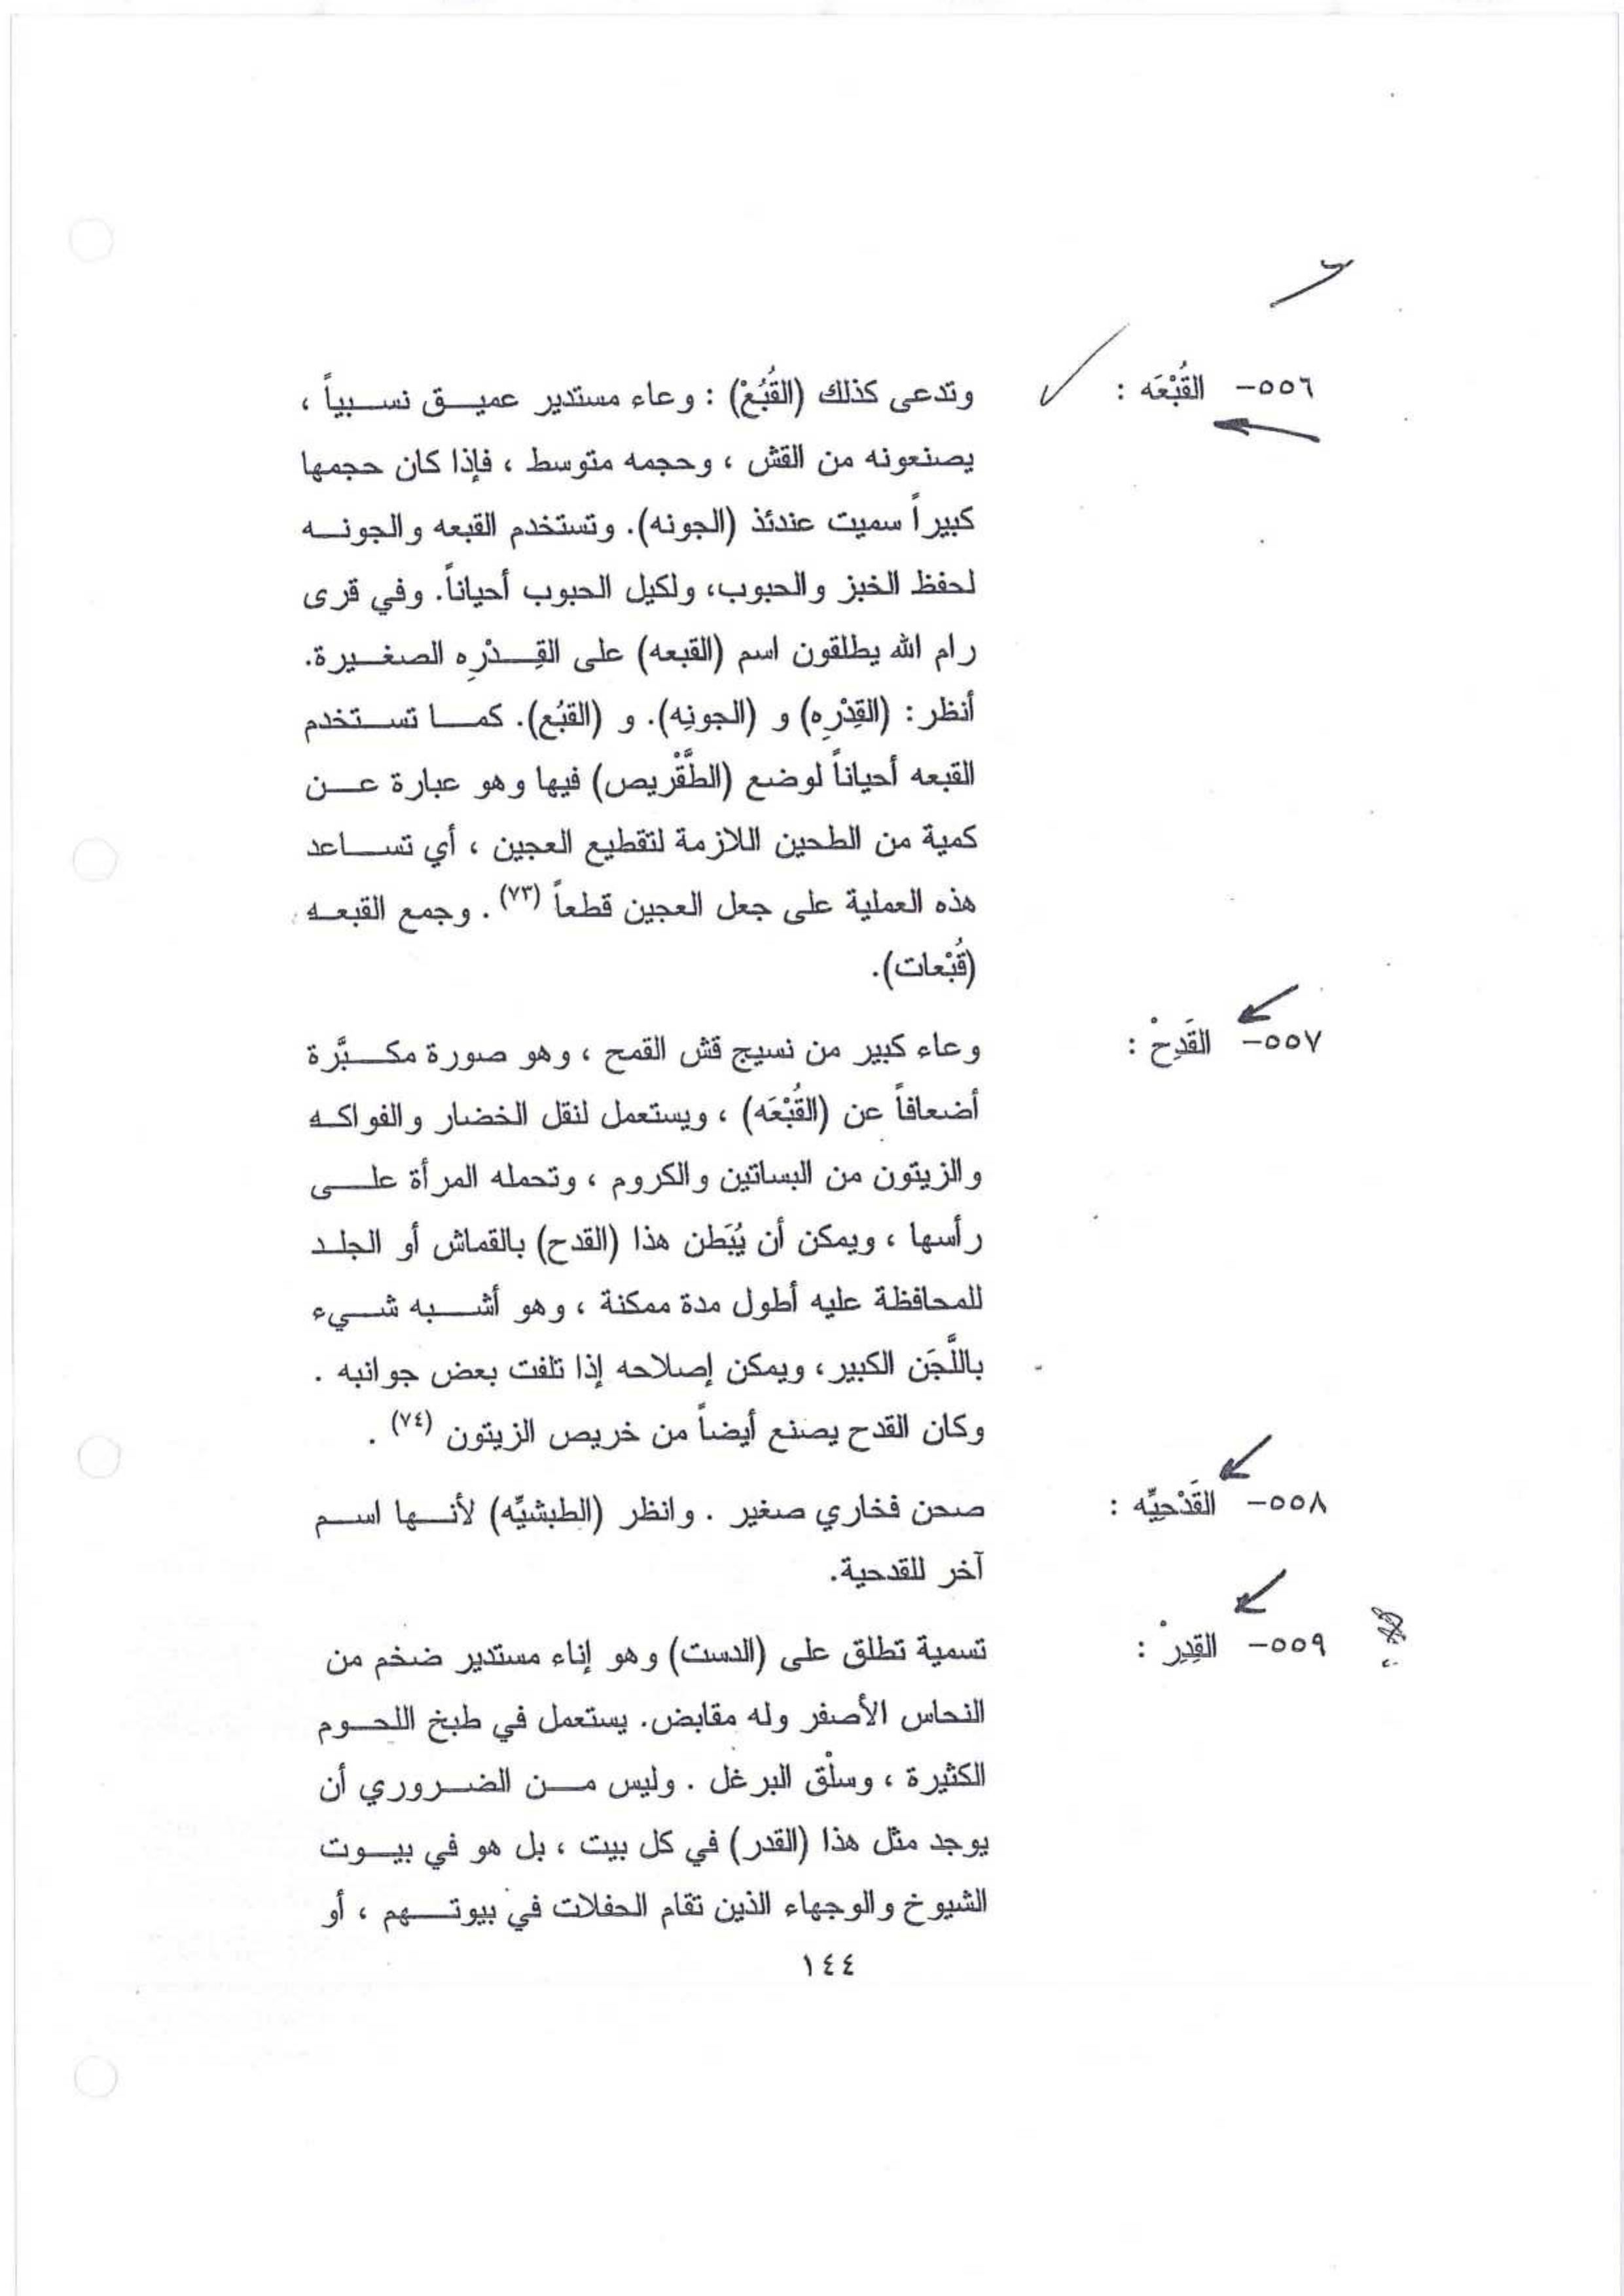 ٥٥٦- القُبْعَه : وتدعى كذلك (القُبُعْ) : وعاء مستدير عميق نسبياً ،
يصنعونه من القش ، وحجمه متوسط ، فإذا كان حجمها
كبيراً سميت عندئذ (الجونه). وتستخدم القبعه والجونه
لحفظ الخبز والحبوب، ولكيل الحبوب أحياناً. وفي قرى
رام الله يطلقون اسم (القبعه) على القِدْرِه الصغيرة.
أنظر: (القِدْرِه) و (الجونِه). و (القبُع). كما تستخدم
القبعه أحياناً لوضع (الطَّقْريص) فيها وهو عبارة عن
كمية من الطحين اللازمة لتقطيع العجين ، أي تساعد
هذه العملية على جعل العجين قطعاً (٧٣) . وجمع القبعه
(قُبْعات).
٥٥٧- القَدِحْ : وعاء كبير من نسيج قش القمح ، وهو صورة مكبَّرة
أضعافاً عن (القُبْعَه) ، ويستعمل لنقل الخضار والفواكه
والزيتون من البساتين والكروم ، وتحمله المرأة على
رأسها ، ويمكن أن يُبَطن هذا (القدح) بالقماش أو الجلد
للمحافظة عليه أطول مدة ممكنة ، وهو أشبه شيء
باللَّجَن الكبير، ويمكن إصلاحه إذا تلفت بعض جوانبه .
وكان القدح يصنع أيضاً من خريص الزيتون (٧٤) .
٥٥٨- القَدْحيِّه : صحن فخاري صغير . وانظر (الطبشيِّه) لأنها اسم
آخر للقدحية.
٥٥٩- القِدِرْ : تسمية تطلق على (الدست) وهو إناء مستدير ضخم من
النحاس الأصفر وله مقابض. يستعمل في طبخ اللحوم
الكثيرة ، وسلْق البرغل . وليس من الضروري أن
يوجد مثل هذا (القدر) في كل بيت ، بل هو في بيوت
الشيوخ والوجهاء الذين تقام الحفلات في بيوتهم ، أو
١٤٤